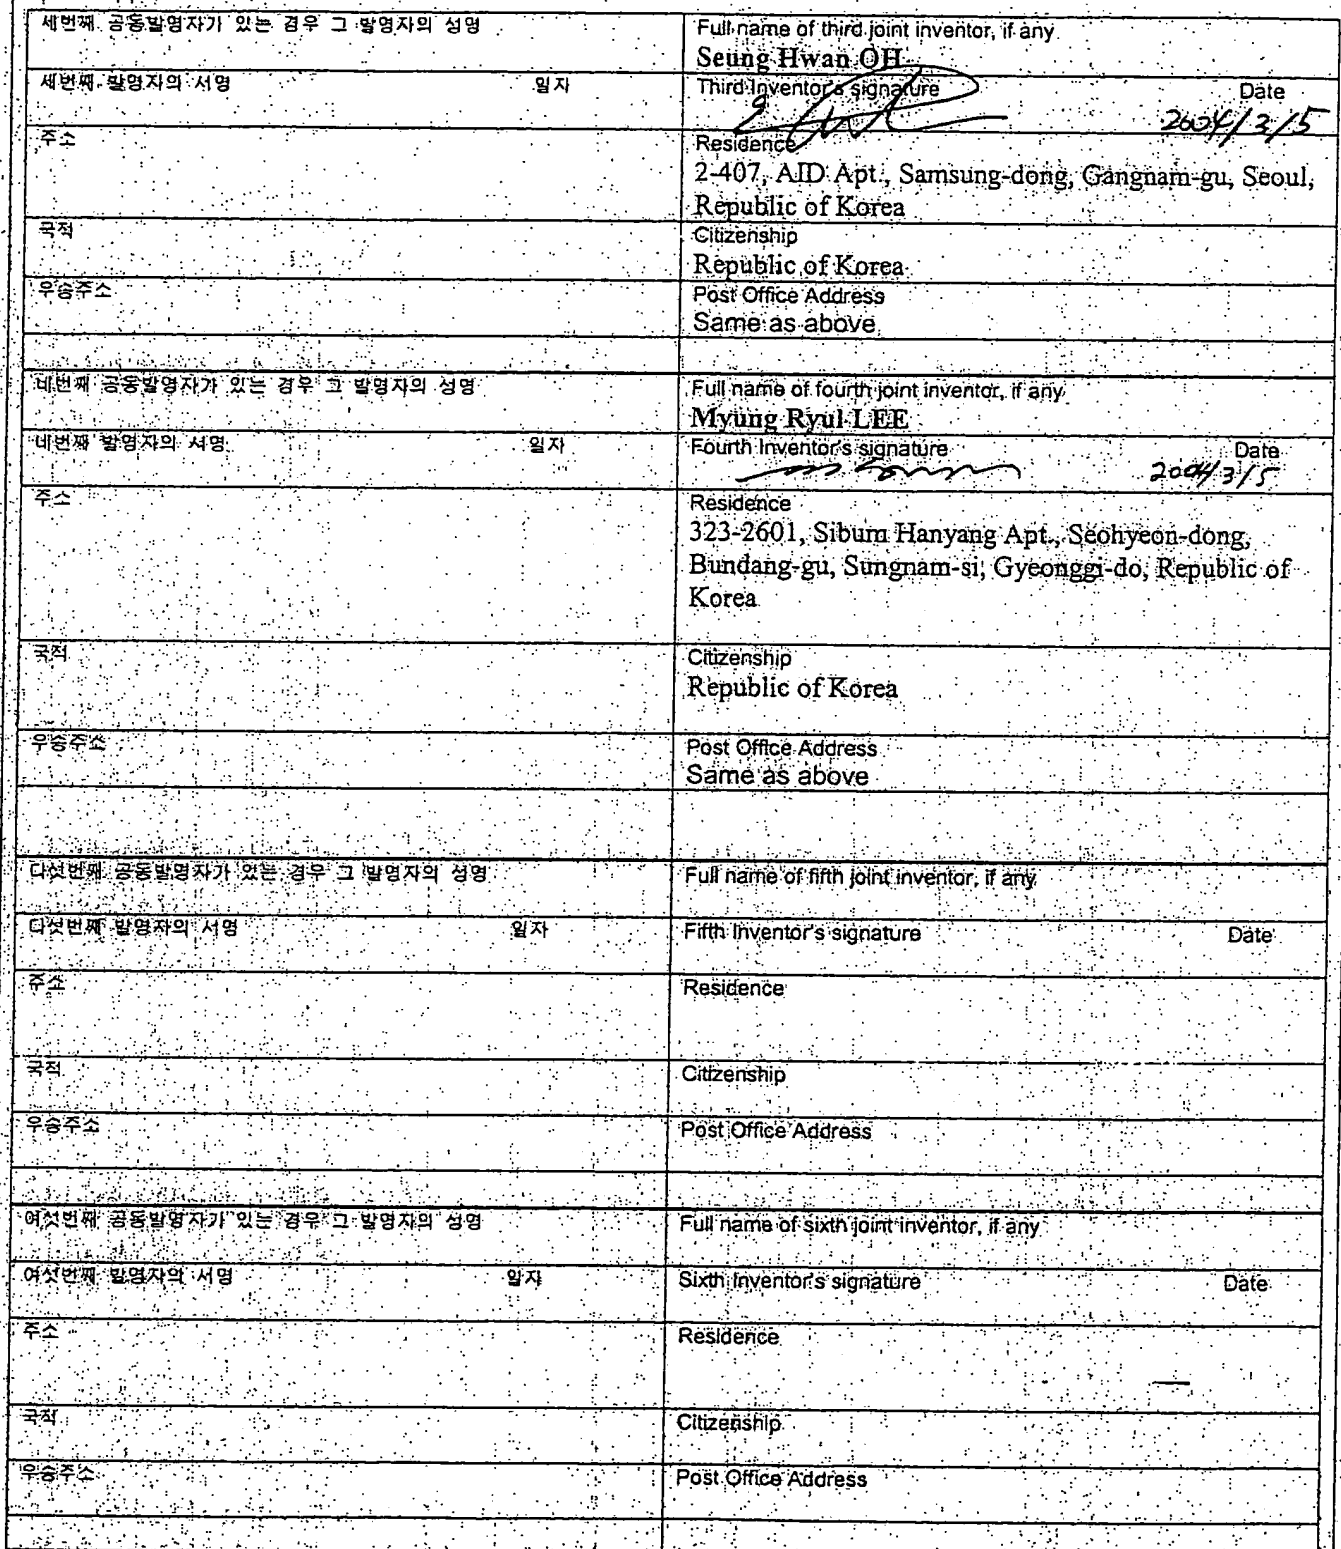 세번째 공동발명자가 있는 경우 그 발명자의 성명
Full name of third joint inventor, if any
Seung Hwan OH
세번째 발명자의 서명 일자
Third Inventor's signature Date
2004/3/5
주소
Residence
2-407, AID Apt., Samsung-dong, Gangnam-gu, Seoul,
Republic of Korea
국적
Citizenship
Republic of Korea
우송주소
Post Office Address
Same as above
네번째 공동발명자가 있는 경우 그 발명자의 성명
Full name of fourth joint inventor, if any
Myung Ryul LEE
네번째 발명자의 서명 일자
Fourth Inventor's signature Date
2004/3/5
주소
Residence
323-2601, Sibum Hanyang Apt., Seohyeon-dong,
Bundang-gu, Sungnam-si, Gyeonggi-do, Republic of
Korea
국적
Citizenship
Republic of Korea
우송주소
Post Office Address
Same as above
다섯번째 공동발명자가 있는 경우 그 발명자의 성명
Full name of fifth joint inventor, if any
다섯번째 발명자의 서명 일자
Fifth Inventor's signature Date
주소
Residence
국적
Citizenship
우송주소
Post Office Address
여섯번째 공동발명자가 있는 경우 그 발명자의 성명
Full name of sixth joint inventor, if any
여섯번째 발명자의 서명 일자
Sixth Inventor's signature Date
주소
Residence
국적
Citizenship
우송주소
Post Office Address